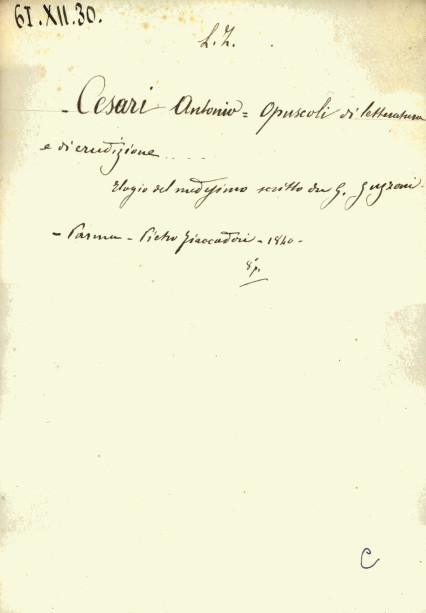 61.XII.30.
L.Z.
- Cesari Antonio = Opuscoli di letteratura
e di erudizione ....
Elogio del medesimo scritto da G.
- Parma - Pietro Fiaccadori - 1840 -
8º p.
C